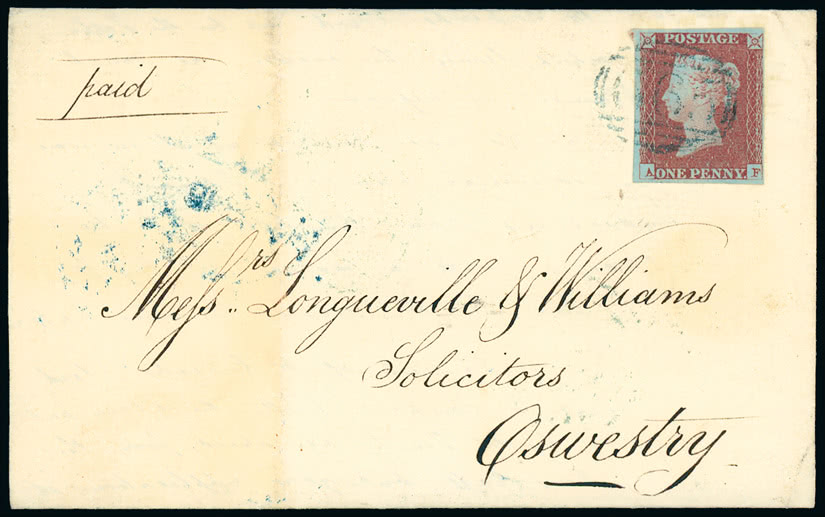 paid
POSTAGE
A ONE PENNY. F
Messrs.. Longueville & Williams
Solicitors
Oswestry